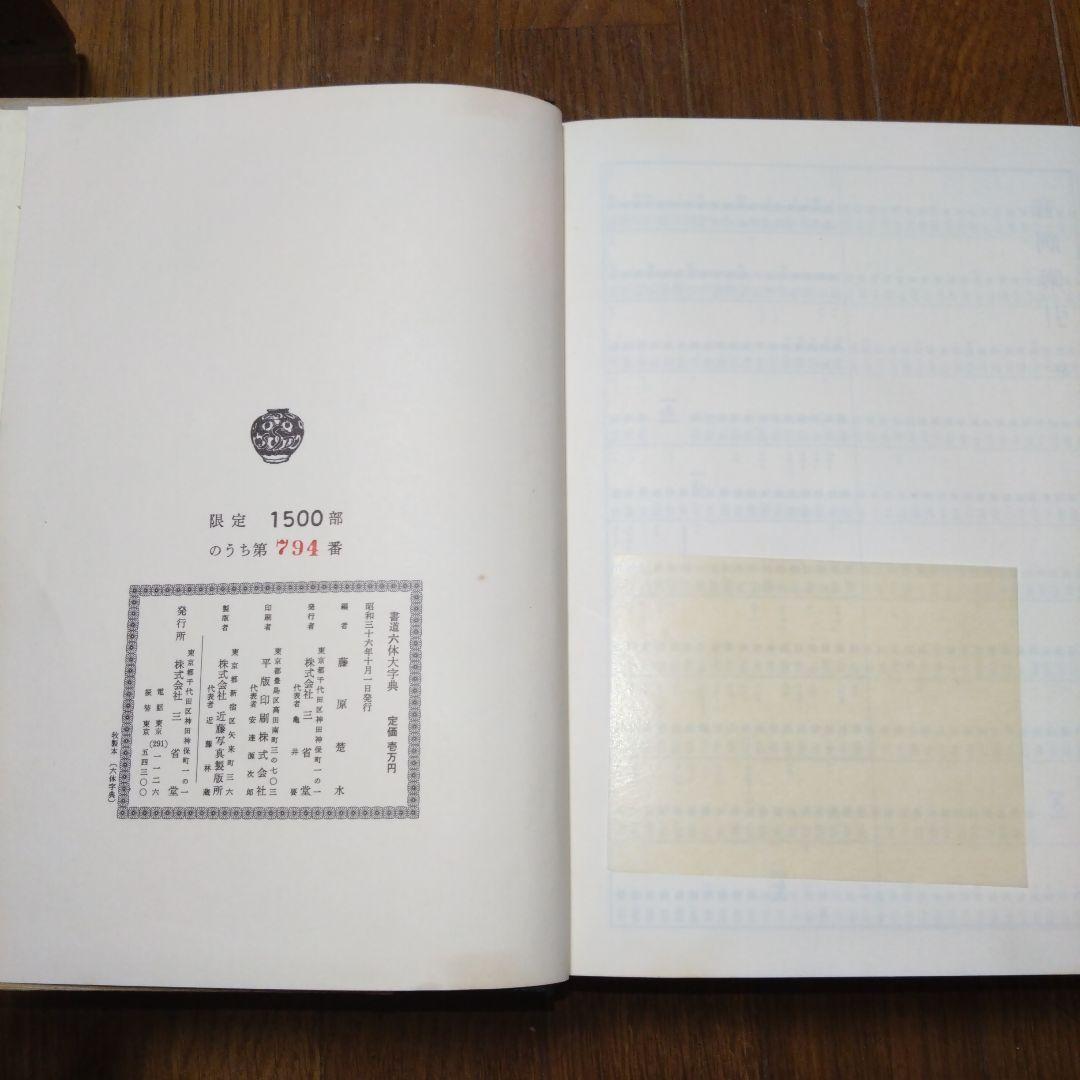 限定 1500部
のうち第794番
書道六体大字典 定価 壱万円
昭和三十六年十月一日発行
編者 藤原楚水
東京都千代田区神田神保町一の一
発行者 株式会社三省堂
代表者 亀井要
東京都豊島区高田南町三の七〇三
印刷者 平版印刷株式会社
代表者 安達源次郎
東京都新宿区矢来町三六
製版者 株式会社近藤写真製版所
代表者 近藤林蔵
東京都千代田区神田神保町一の一
発行所 株式会社三省堂
電話 東京(291)一一二六
振替 東京 五四三〇〇
〔六体字典〕